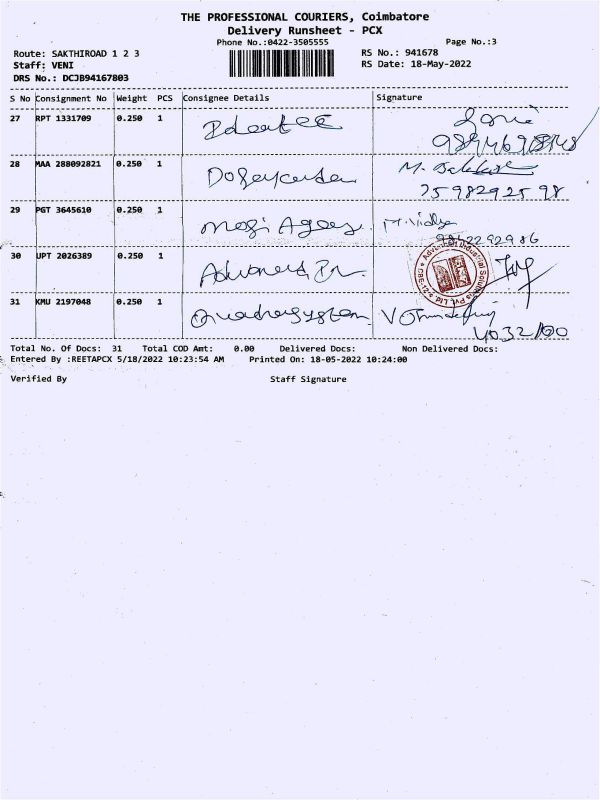 THE PROFESSIONAL COURIERS, Coimbatore
Delivery Runsheet - PCX
Phone No.:0422-3505555 Page No.:3
Route: SAKTHIROAD 1 2 3 RS No.: 941678
Staff: VENI RS Date: 18-May-2022
DRS No.: DCJB94167803
S No Consignment No Weight PCS Consignee Details Signature
27 RPT 1331709 0.250 1
28 MAA 288092821 0.250 1
M.
7598292598
29 PGT 3645610 0.250 1
M. Vidya
9842292986
30 UPT 2026389 0.250 1
31 KMU 2197048 0.250 1 Quadrasystem
Total No. Of Docs: 31 Total COD Amt: 0.00 Delivered Docs: Non Delivered Docs:
Entered By :REETAPCX 5/18/2022 10:23:54 AM Printed On: 18-05-2022 10:24:00
Verified By Staff Signature